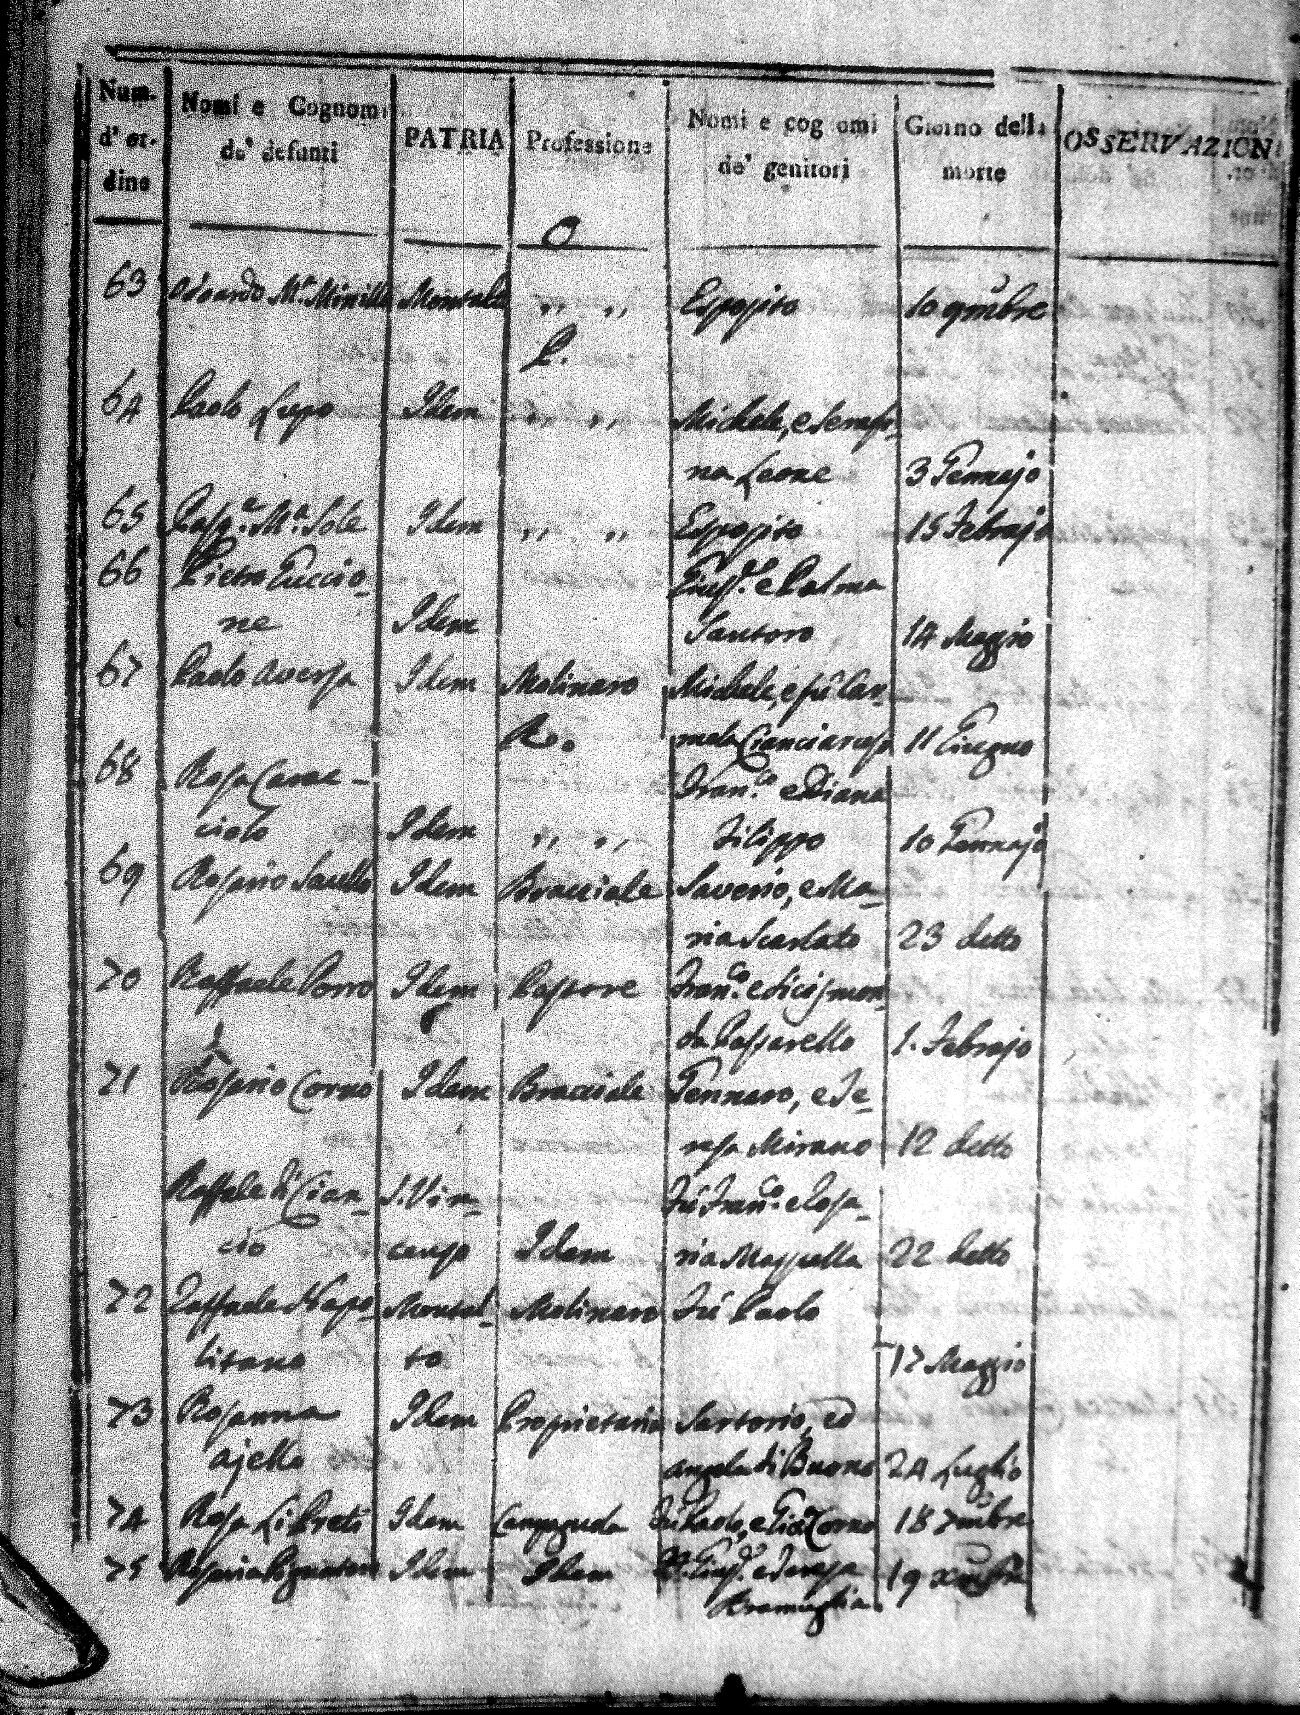 Num. d' or- dine
Nomi e Cognomi de' defunti
PATRIA
Professione
Nomi e cog omi de' genitori
Giorno della morte
OSSERVAZIONI
O
63 Odoardo M.ª Mirilli Montalto ,, ,, Esposito 10 9mbre
P.
64 Paolo Lupo Idem ,, ,, Michele, e Serafi-
na Leone 3 Gennajo
65 Pasq.e M.ª Sole Idem ,, ,, Esposito 15 Febrajo
66 Pietro Guccio- Gius.e e Palma
ne Idem Santoro 14 Maggio
67 Paolo Aversa Idem Molinaro Michele, e fù Car-
R. mela Cianciaruso 11 Giugno
68 Rosa Carac- Fran.co e Diana
ciolo Idem ,, ,, Filippo 10 Gennajo
69 Rosario Sacello Idem Bracciale Saverio, e Ma-
ria Scarlato 23 detto
70 Raffaele Porro Idem Pastore Fran.co e Sicismon-
da Passarello 1. Febrajo
71 Rosario Corno Idem Bracciale Gennaro, e Te-
resa Mirano 12 detto
Raffaele di Cian- S. Vin- Fù Fran.co e Rosa-
cio cenzo Idem ria Mappella 22 detto
72 Raffaele Napo- Montal- Molinaro Fù Paolo
litano to 17 Maggio
73 Rosanna Idem Proprietaria Sartorio, ed
Ajello Angela di Buono 24 Luglio
74 Rosa Li Preti Idem Campagnola Fù Paolo, e Gio: Corno 18 7mbre
75 Rosaria Idem Idem Gius.e e Teresa 19 xmbre
Bramuglia